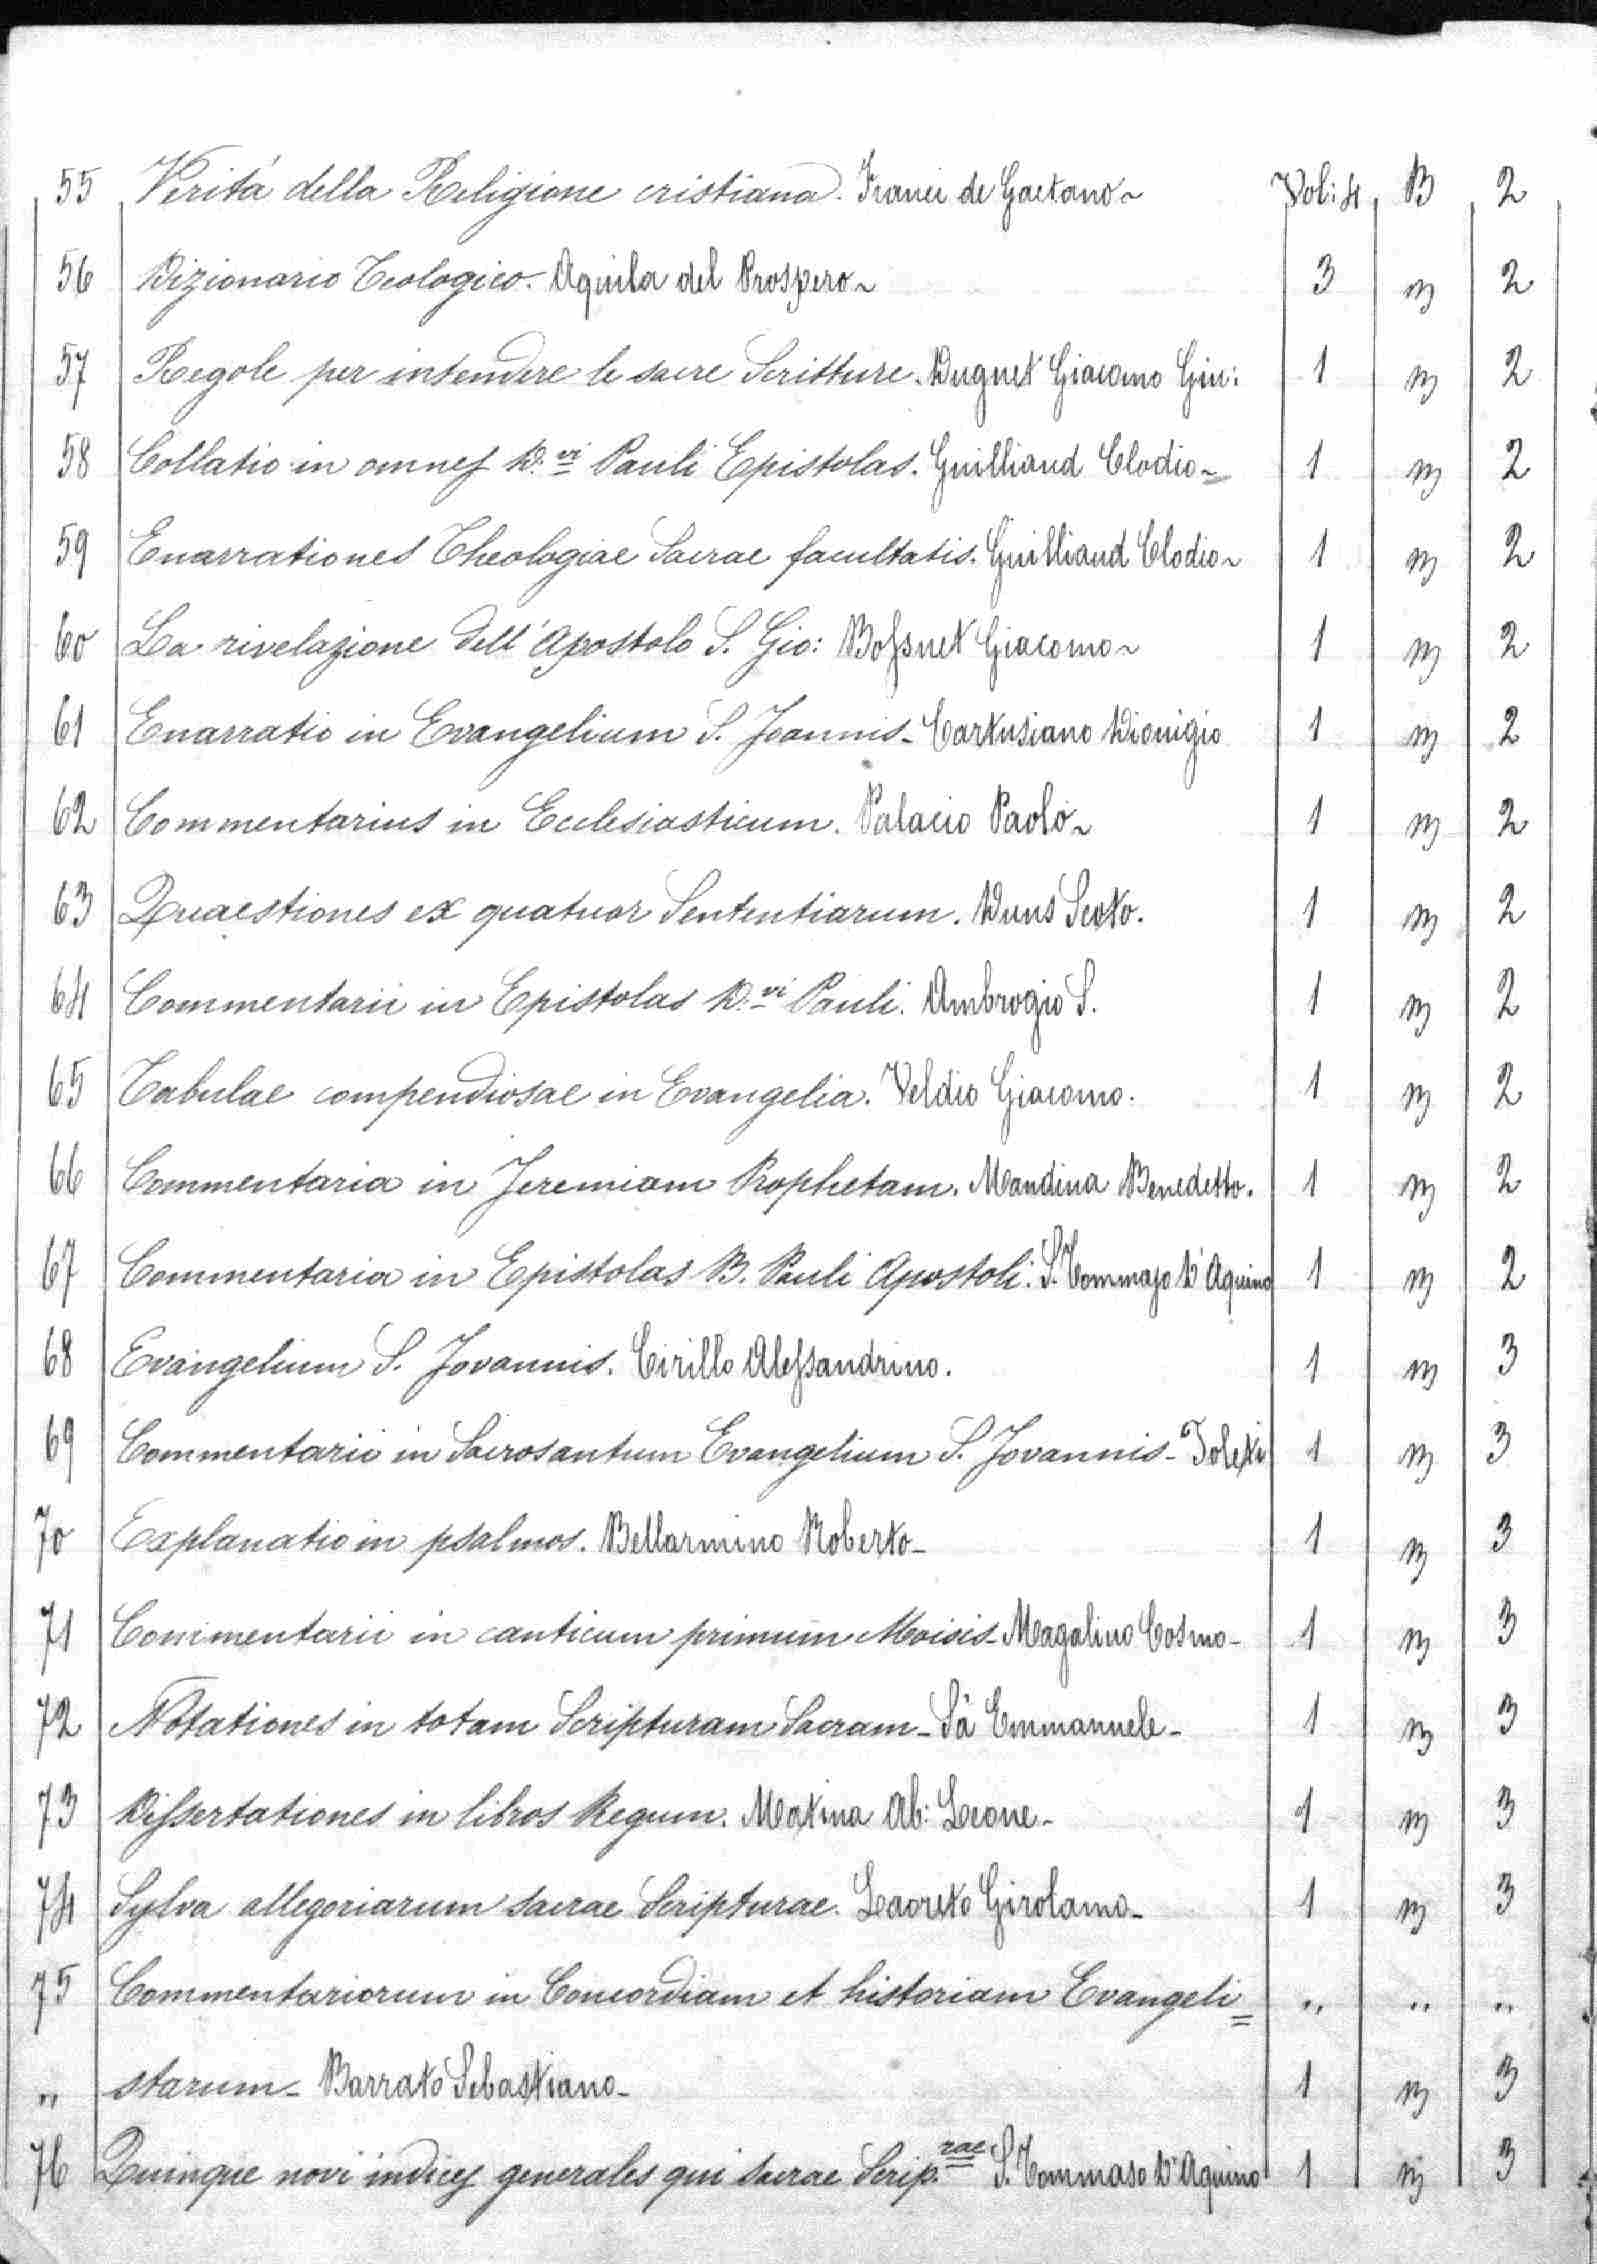 55 Veritá della Religione cristiana. Franci de Gaetano~ Vol: 4 B 2
56 Dizionario Teologico. Aquila del Prospero~ 3 „ 2
57 Regole per intendere le sacre Scritture. Duguet Giacomo Giu: 1 „ 2
58 Collatio in omnes D.vi Pauli Epistolas. Guilliaud Clodio~ 1 „ 2
59 Enarrationes Theologiae Sacrae facultatis. Guilliaud Clodio~ 1 „ 2
60 La rivelazione dell'Apostolo S. Gio: Bossuet Giacomo~ 1 „ 2
61 Enarratio in Evangelium S. Joannis- Cartusiano Dionigio 1 „ 2
62 Commentarius in Ecclesiasticum. Palacio Paolo~ 1 „ 2
63 Quaestiones ex quatuor Sententiarum. Duns Scoto. 1 „ 2
64 Commentarii in Epistolas D.vi Pauli. Ambrogio S. 1 „ 2
65 Tabulae compendiosae in Evangelia. Veldio Giacomo. 1 „ 2
66 Commentaria in Jeremiam Prophetam. Mandina Benedetto. 1 „ 2
67 Commentaria in Epistolas B. Pauli Apostoli. S. Tommaso D'Aquino 1 „ 2
68 Evangelium S. Jovannis. Cirillo Alessandrino. 1 „ 3
69 Commentarii in Sacrosantum Evangelium S. Jovannis- Toleti 1 „ 3
70 Explanatio in psalmos. Bellarmino Roberto- 1 „ 3
71 Commentarii in canticum primum Moisis- Magalino Cosmo- 1 „ 3
72 Notationes in totam Scripturam Sacram- Sà Emmanuele- 1 „ 3
73 Dissertationes in libros Regum. Matina Ab: Leone- 1 „ 3
74 Sylva allegoriarum sacrae Scripturae. Laoreto Girolamo- 1 „ 3
75 Commentariorum in Concordiam et historiam Evangeli= „ „ „
„ starum- Barrato Sebastiano- 1 „ 3
76 Quinque novi indices generales qui sacrae Scrip.rae S. Tommaso D'Aquino 1 „ 3